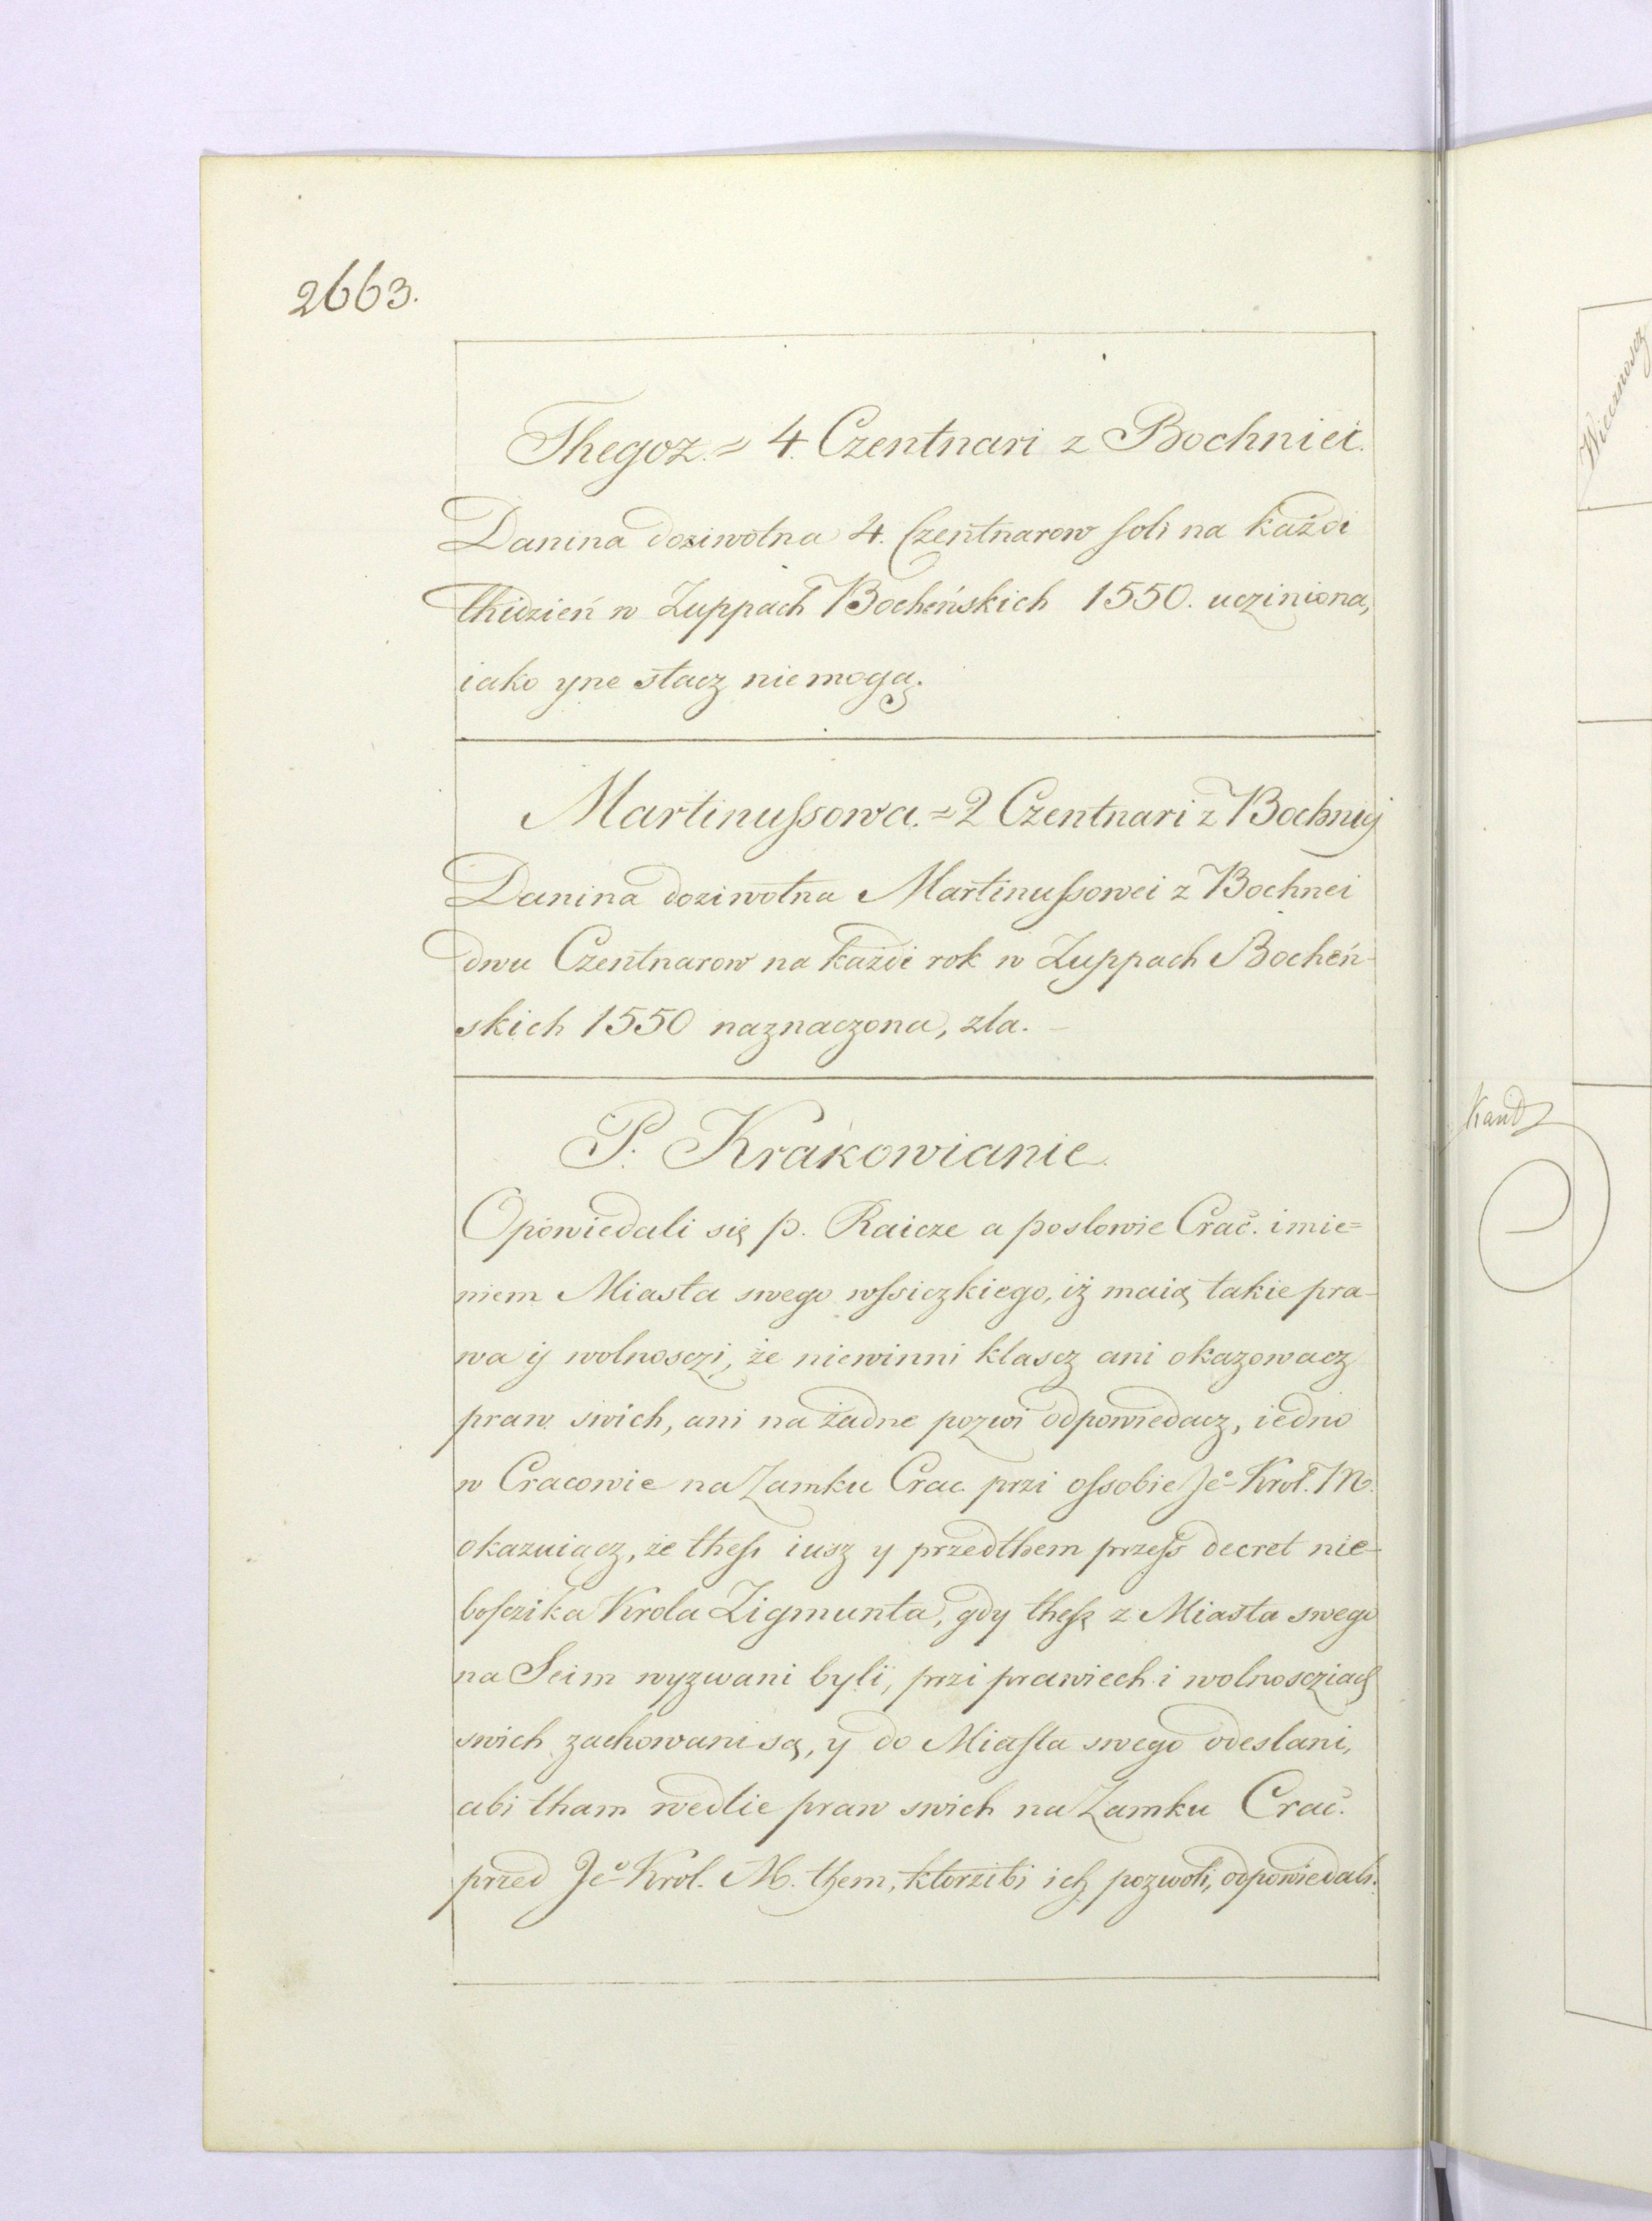 2663.
Thegoz = 4. Czentnari z Bochniei.
Danina doziwotna 4. Czentnarow soli na każdi
thidzień w Zuppach Bocheńskich 1550. ucziniona,
iako yne stacz nie mogą.
Martinussowa. = 2 Czentnari z Bochniej
Danina doziwotna Martinussowei z Bochnei
dwu Czentnarow na każdi rok w Zuppach Bocheń-
skich 1550 naznaczona, zla. -
P. Krakowianie.
Opowiedali się p. Raicze a poslowie Crac. imie=
niem Miasta swego wssiczkiego, iż maią takie pra-
wa ij wolnosczi, że niewinni klascz ani okazowacz
praw swich, ani na żadne pozwi odpowiedacz, iedno
w Cracowie na Zamku Crac. przi ossobie Je° Krol. M.
okazuiącz, że thesz iusz y przedthem przess decret nie-
bosczika Krola Zigmunta, gdy thesz z Miasta swego
na Seim wyzwani byli, przi prawiech i wolnoscziach
swich zachowani są, y do Miasta swego odeslani,
abi tham wedlie praw swich na Zamku Crac.
przed Je° Krol. M. them, ktorzibi ich pozwoli, odpowiedali.
Wiecznoscz
Kand